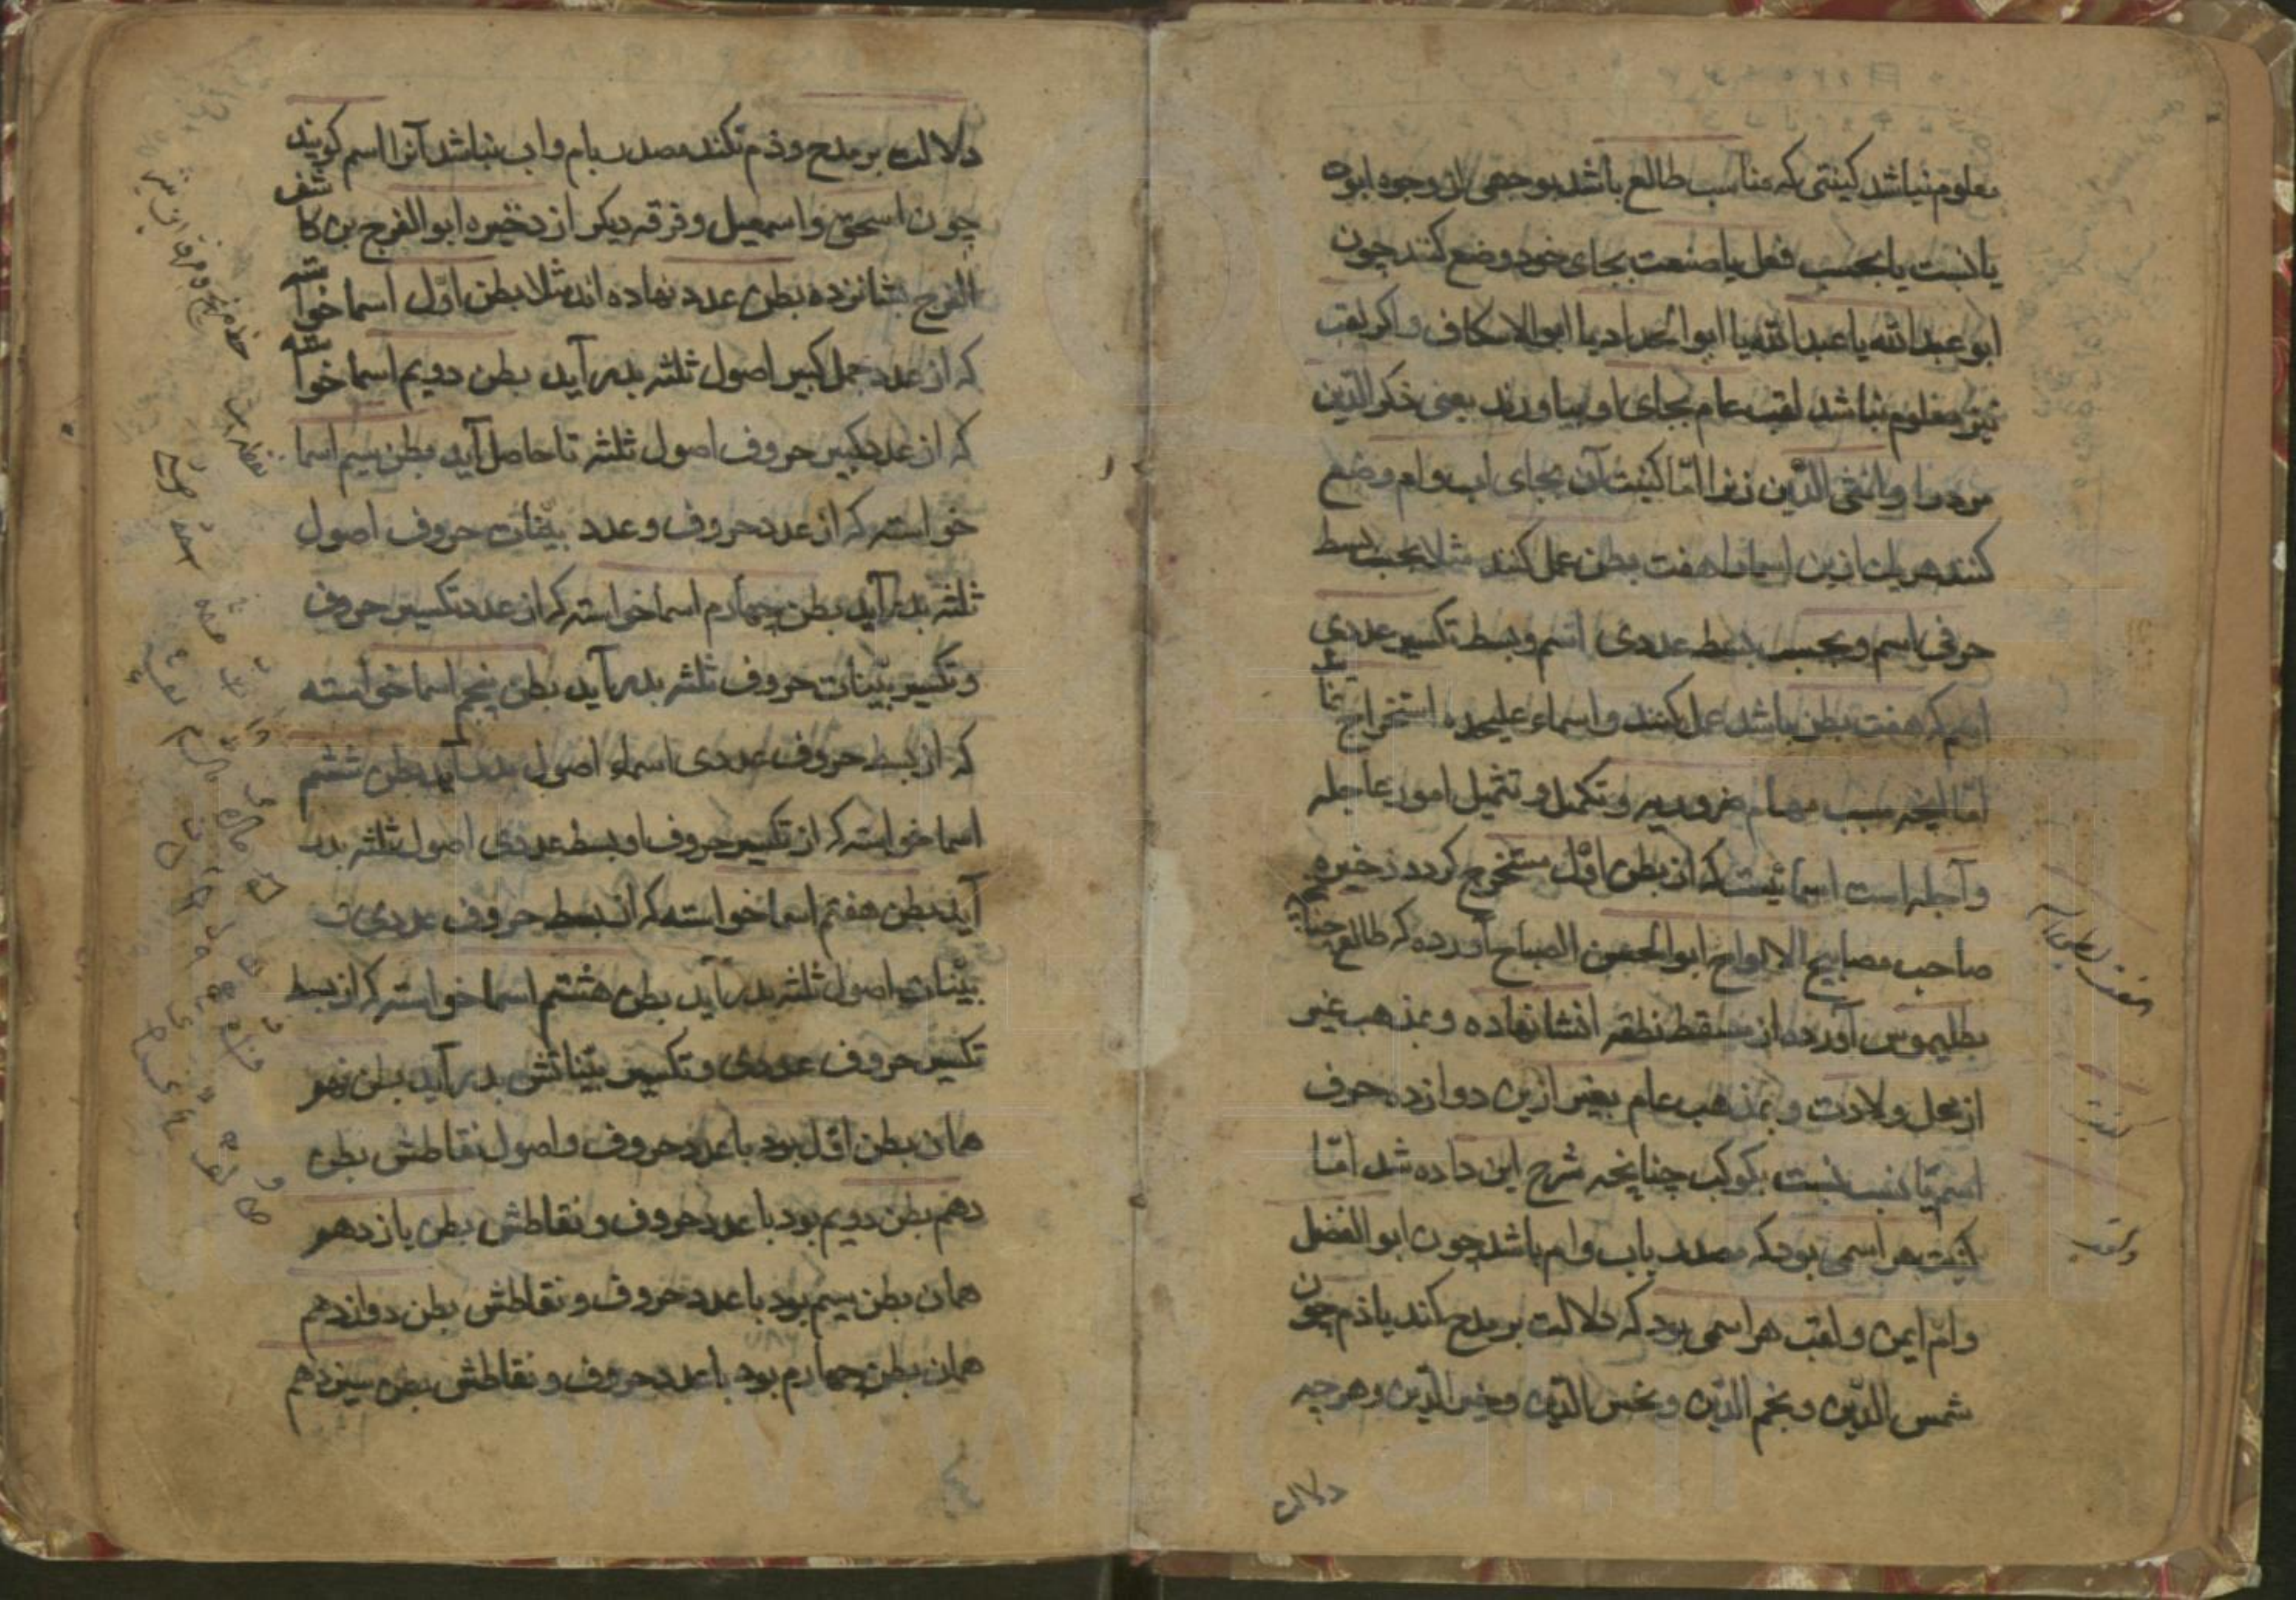 معلوم نباشد کینتی که مناسب طالع باشد بوجهی از وجوه ابوه
یا نسبت یا بحسب فعل یا صنعت بجای خود وضع کنند چون
ابو عبد الله یا عبد الله یا ابو الحداد یا ابو الاسکاف و اکر لقب
نیز معلوم نباشد لقب عام بجای او بیاورند یعنی ذکر الدین
مرد را و انثی الدین زنرا امّا کینت آن بجای اب و ام وضع
کنند هر یک ازین اسما را هفت بطن عمل کنند مثلا بحسب بسط
حرفی اسم و بحسب بسط عددی اسم و بسط تکسیر عددی
اسم که هفت بطن باشد عمل کنند و اسماء علیحده استخراج نمایند
امّا انچه سبب مهام ضروریه و تکمیل و تثمیل امور عاجله
و آجله است اسمائیست که از بطن اوّل مستخرج کردد ذخیره
صاحب مصابیح الالواح ابو الحسن الصباح آورده که طالع چنانچه
بطلیموس آورده از مسقط نطفه انشا نهاده و بمذهب غیر
از محل ولادت و بمذهب عام بغیر ازین دوازده حرف
اسم یا نسبت بکوکب چنانچه شرح این داده شد امّا
کینت هر اسمی بود که مصدر باب و ام باشد چون ابو الفضل
و ام ایمن و لقب هر اسمی بود که دلالت بر مدح کند یا ذم چون
شمس الدین و نجم الدین و نحس الدین و خیر الدین و هر چه
دلالت
دلالت بر مدح و ذم نکند مصدر بام و اب نباشد آنرا اسم کویند
چون اسحق و اسمعیل و فرقه دیکر از ذخیره ابو الفرج بن کاشف
الفرج بشانزده بطن عدد نهاده اند مثلا بطن اوّل اسما خواسته
که از عدد جمل کبیر اصول ثلثه بدر آید بطن دویم اسما خواسته
که از عدد کبیر حروف اصول ثلثه تا حاصل آید بطن سیم اسما
خواسته که از عدد حروف و عدد بیّنات حروف اصول
ثلثه بدر آید بطن چهارم اسما خواسته که از عدد تکسیر حروف
و تکسیر بیّنات حروف ثلثه بدر آید بطن پنجم اسما خواسته
که از بسط حروف عددی اسماء اصول بدر آید بطن ششم
اسما خواسته که از تکسیر حروف او بسط عددی اصول ثلثه بدر
آید بطن هفتم اسما خواسته که از بسط حروف عددی
بیّنات اصول ثلثه بدر آید بطن هشتم اسما خواسته که از بسط
تکسیر حروف عددی و تکسیر بیّناتش بدر آید بطن نهم
همان بطن اوّل بود با عدد حروف و اصول نقاطش بطن
دهم بطن دویم بود با عدد حروف و نقاطش بطن یازدهم
همان بطن سیم بود با عدد حروف و نقاطش بطن دوازدهم
همان بطن چهارم بود با عدد حروف و نقاطش بطن سیزدهم